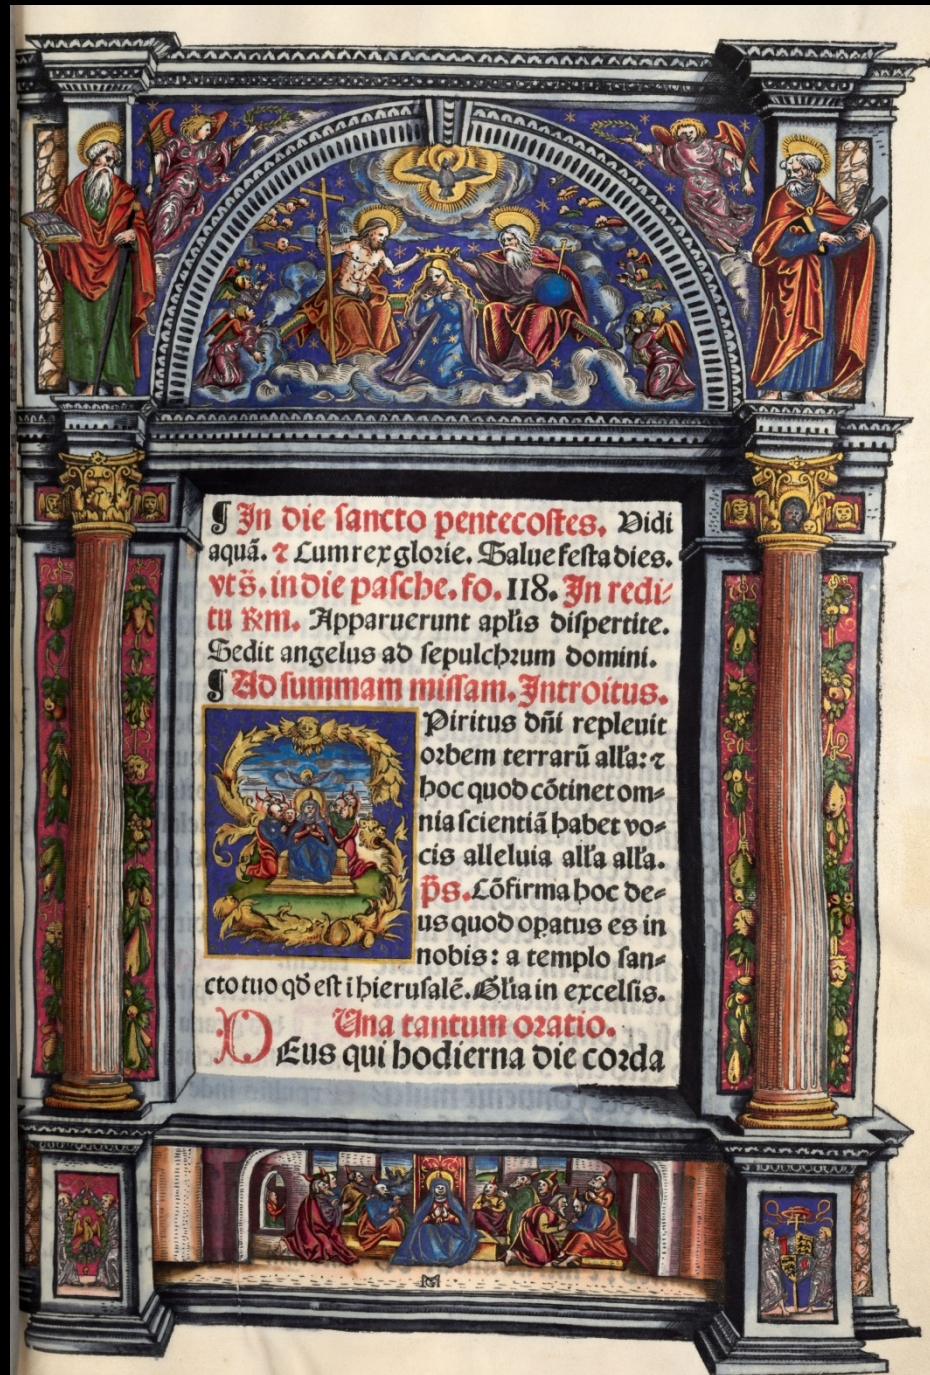 ¶ In die sancto pentecostes. Vidi
aquã. ⁊ Cum rex glorie. Salue festa dies.
vt s̃. in die pasche. fo. 118. In redi⸗
tu Rm̃. Apparuerunt apl'is dispertite.
Sedit angelus ad sepulchrum domini.
¶ Ad summam missam. Introitus.
SPiritus dñi repleuit
orbem terrarũ all'a: ⁊
hoc quod cõtinet om⸗
nia scientiã habet vo⸗
cis alleluia all'a all'a.
p̃s. Cõfirma hoc de⸗
us quod opatus es in
nobis: a templo san⸗
cto tuo qđ est i hierusalẽ. Gl'ia in excelsis.
Una tantum oratio.
DEus qui hodierna die corda